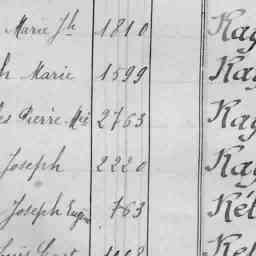 Marie Jh 1810 Kag
h Marie 1599 Kag
es Pierre Mie 2763 Kag
Joseph 2220 Kag
Joseph Eugne 763 Kél
Kel